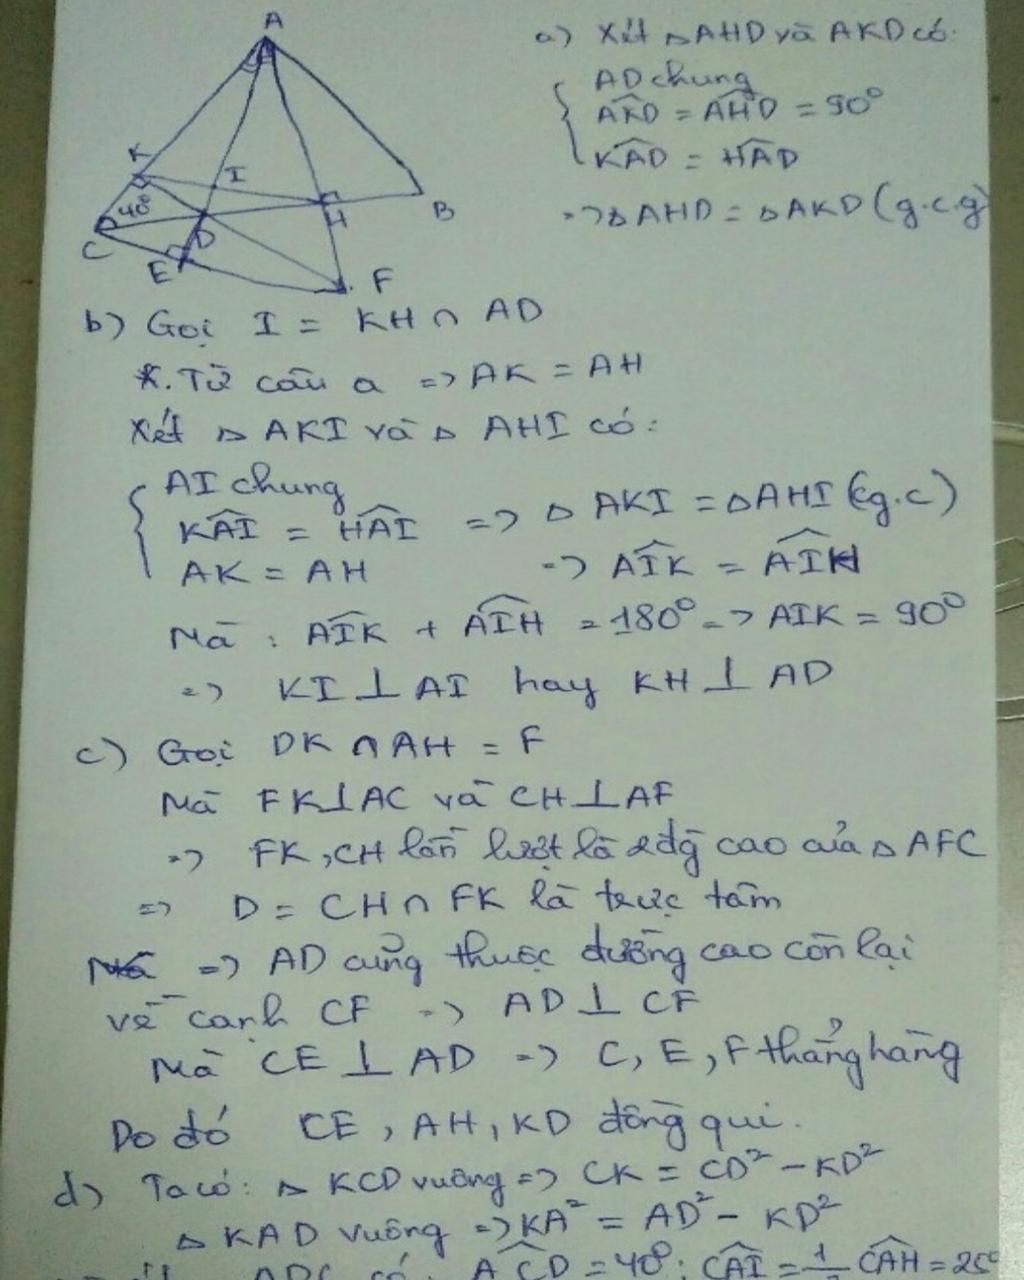 A
K
I
40°
H
B
C
D
E
F
a) Xét △AHD và AKD có:
AD chung
AKD = AHD = 90°
KAD = HAD
=> △AHD = △AKD (g.c.g)
b) Gọi I = KH ∩ AD
*. Từ câu a => AK = AH
Xét △ AKI và △ AHI có:
AI chung
KAI = HAI => △ AKI = △AHI (cg.c)
AK = AH => AIK = AIH
Mà : AIK + AIH = 180° => AIK = 90°
=> KI ⊥ AI hay KH ⊥ AD
c) Gọi DK ∩ AH = F
Mà FK⊥AC và CH⊥AF
=> FK, CH lần lượt là 2 đg̃ cao của △ AFC
=> D = CH ∩ FK là trực tâm
=> AD cũng thuộc đường cao còn lại
về cạnh CF => AD ⊥ CF
Mà CE ⊥ AD => C, E, F thẳng hàng
Do đó CE, AH, KD đồng qui.
d) Ta có: △ KCD vuông => CK = CD² - KD²
△ KAD vuông => KA² = AD² - KD²
ADC có: ACD = 40°; CAI = 1/2 CAH = 25°